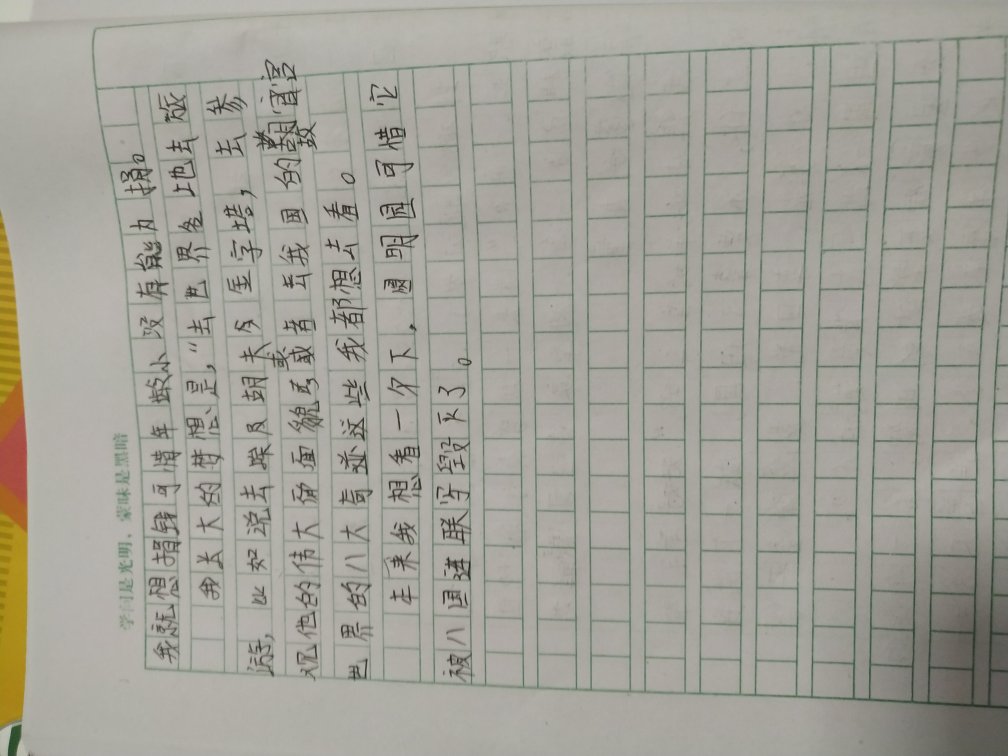 学问是光明、蒙昧是黑暗
我就想捐钱可惜年龄小没有能力捐。
我长大的梦想是，“去世界各地去旅
游，比如说去埃及胡夫及金字塔，去参
观他的伟大面面貌或者去我国的故宫
世界的八大奇迹这些我都想去看。
本来我想看一夕下，圆明园可惜它
被八国联军毁灭了。